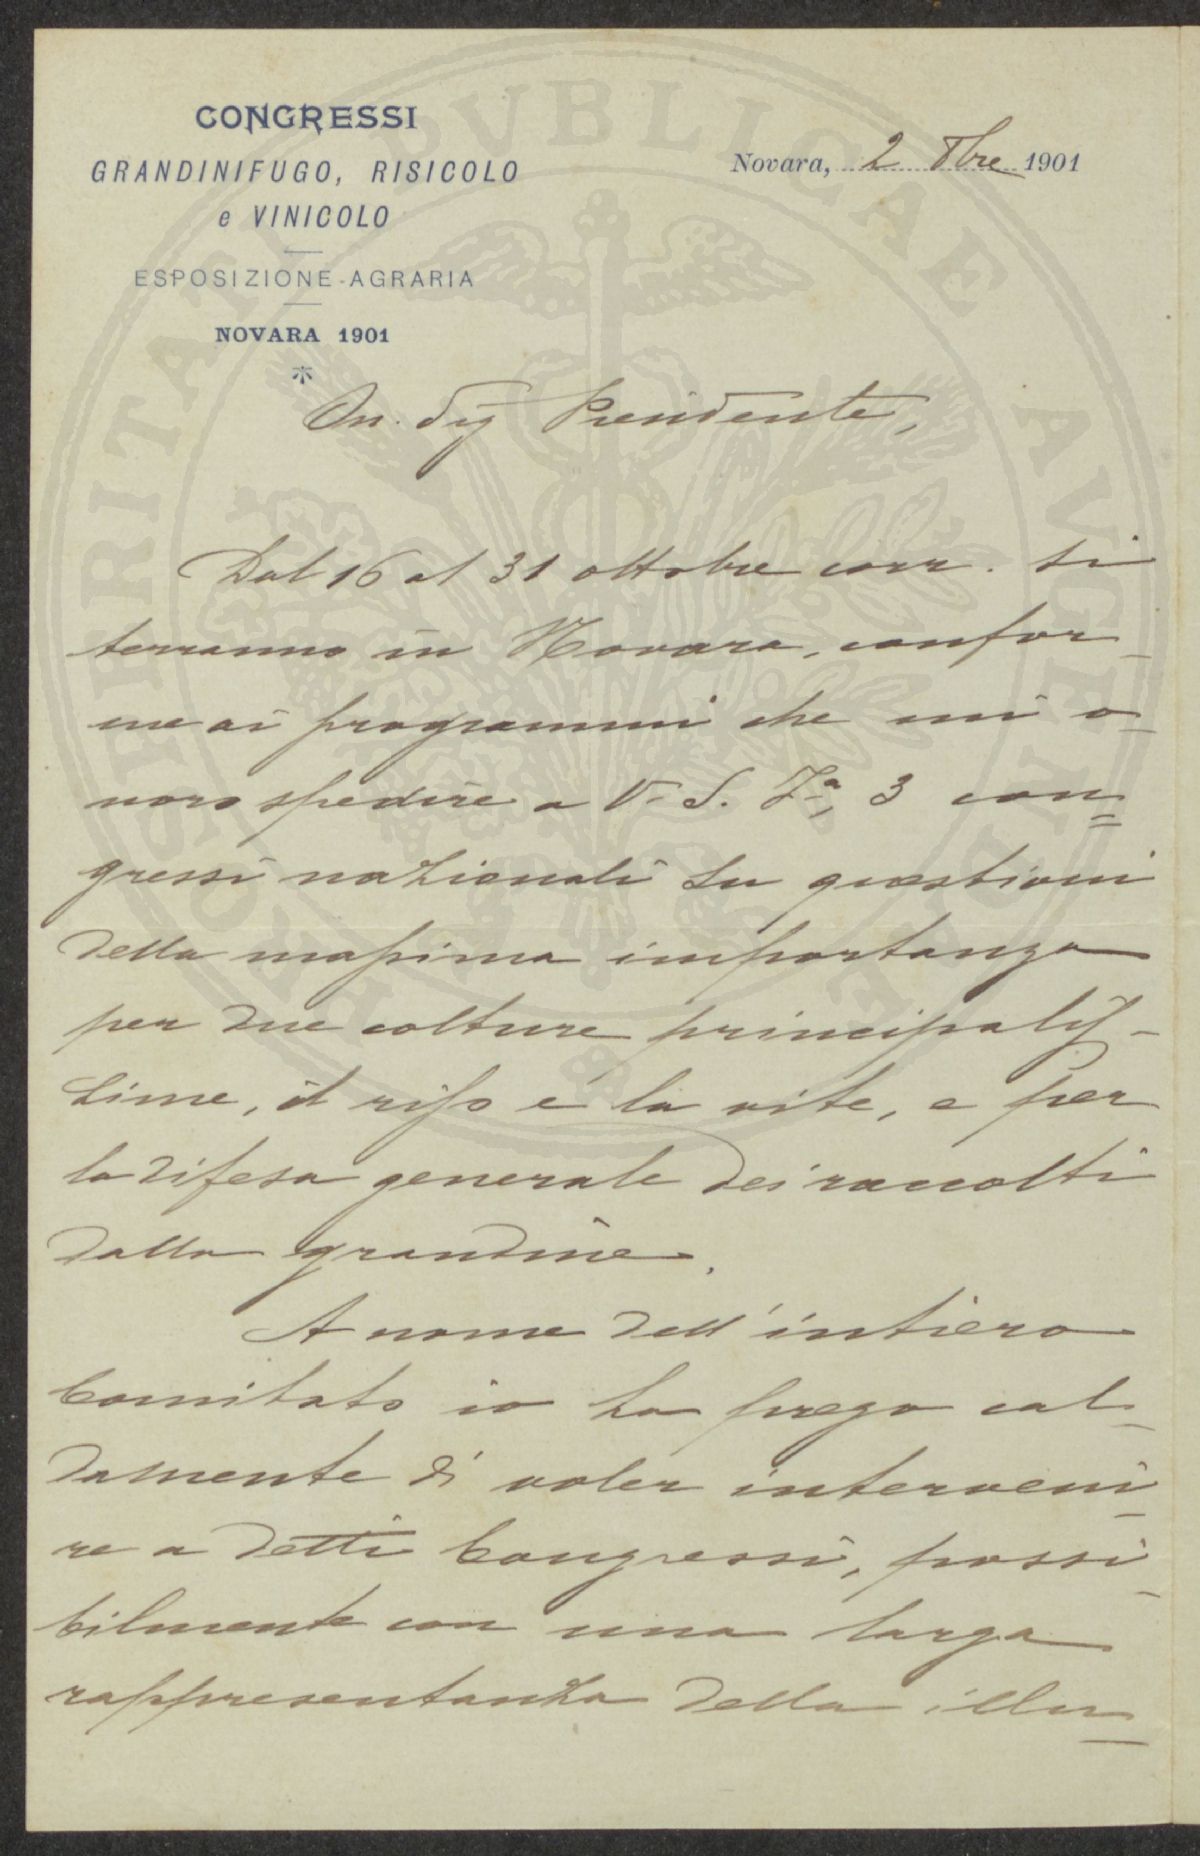 CONGRESSI
GRANDINIFUGO, RISICOLO
e VINICOLO
ESPOSIZIONE-AGRARIA
NOVARA 1901
Novara, 2 8bre 1901
On. Sig Presidente,
Dal 16 al 31 ottobre corr. si
terranno in Novara, confor-
me ai programmi che mi o-
noro spedire a V. S. Ill.a, 3 con=
gressi nazionali su questioni
della massima importanza
per due colture principalis-
sime, il riso e la vite, e per
la difesa generale dei raccolti
dalla grandine.
A nome dell'intiero
Comitato io La prego cal-
damente di voler interveni-
re a detti Congressi, possi-
bilmente con una larga
rappresentanza della illu-
PROSPERITATI PVBLICAE AVGENDAE